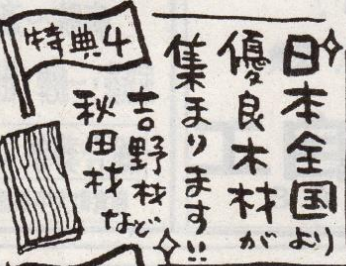 特典4
日本全国より
優良木材が
集まります!!
吉野材
秋田材など